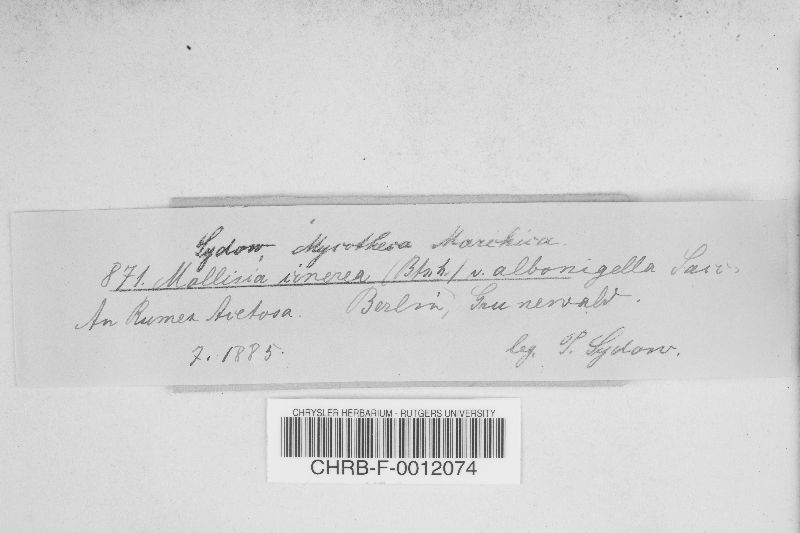 Sydow, Mycotheca Marchica.
871. Mollisia cinerea (Btsch.) v. albonigella Sacc.
An Rumex Acetosa. Berlin, Grunewald.
7. 1885. leg. P. Sydow.
CHRYSLER HERBARIUM - RUTGERS UNIVERSITY
CHRB-F-0012074